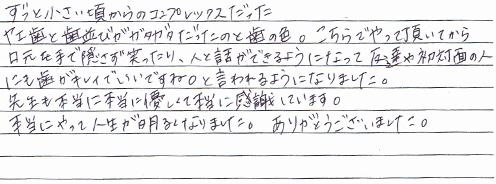 ずっと小さい頃からのコンプレックスだった
ヤエ歯と歯並びがガタガタだったのと歯の色。こちらでやって頂いてから
口元を手で隠さず笑ったり、人と話ができるようになって友達や初対面の人
にも歯がキレイでいいですね。と言われるようになりました。
先生も本当に本当に優しくて本当に感謝しています。
本当にやって人生が明るくなりました。ありがとうございました。